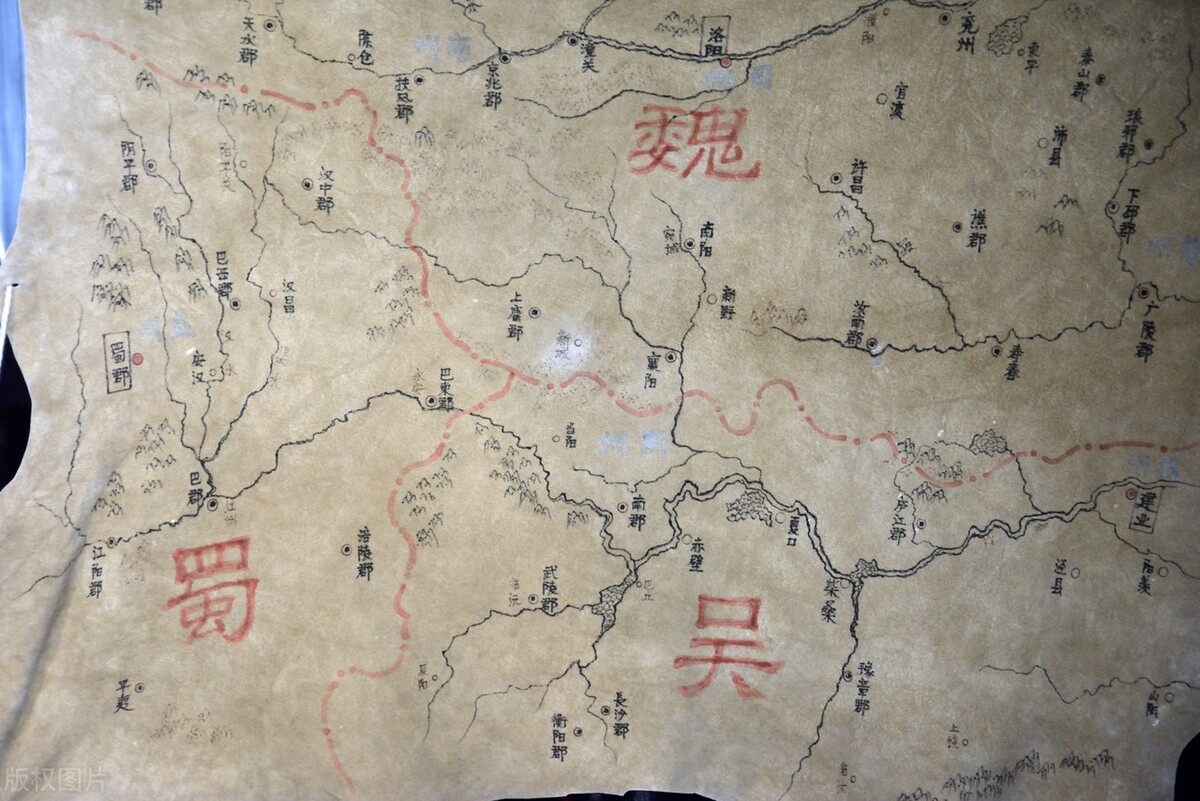 天水郡
陈仓
扶风郡
京兆郡
潼关
洛阳
兖州
东平
泰山郡
官渡
沛县
琅邪郡
魏
阴平郡
汉中郡
许昌
谯郡
下邳郡
南阳
宛城
新野
巴西郡
汉昌
上庸郡
汝南郡
寿春
广陵郡
蜀郡
安汉
襄阳
永安
巴东郡
当阳
巴郡
江州
南郡
夏口
庐江郡
建业
江阳郡
涪陵郡
赤壁
武陵郡
巴丘
柴桑
泾县
阳羡
蜀
吴
豫章郡
长沙郡
衡阳郡
平夷
山阴
上饶
版权图片